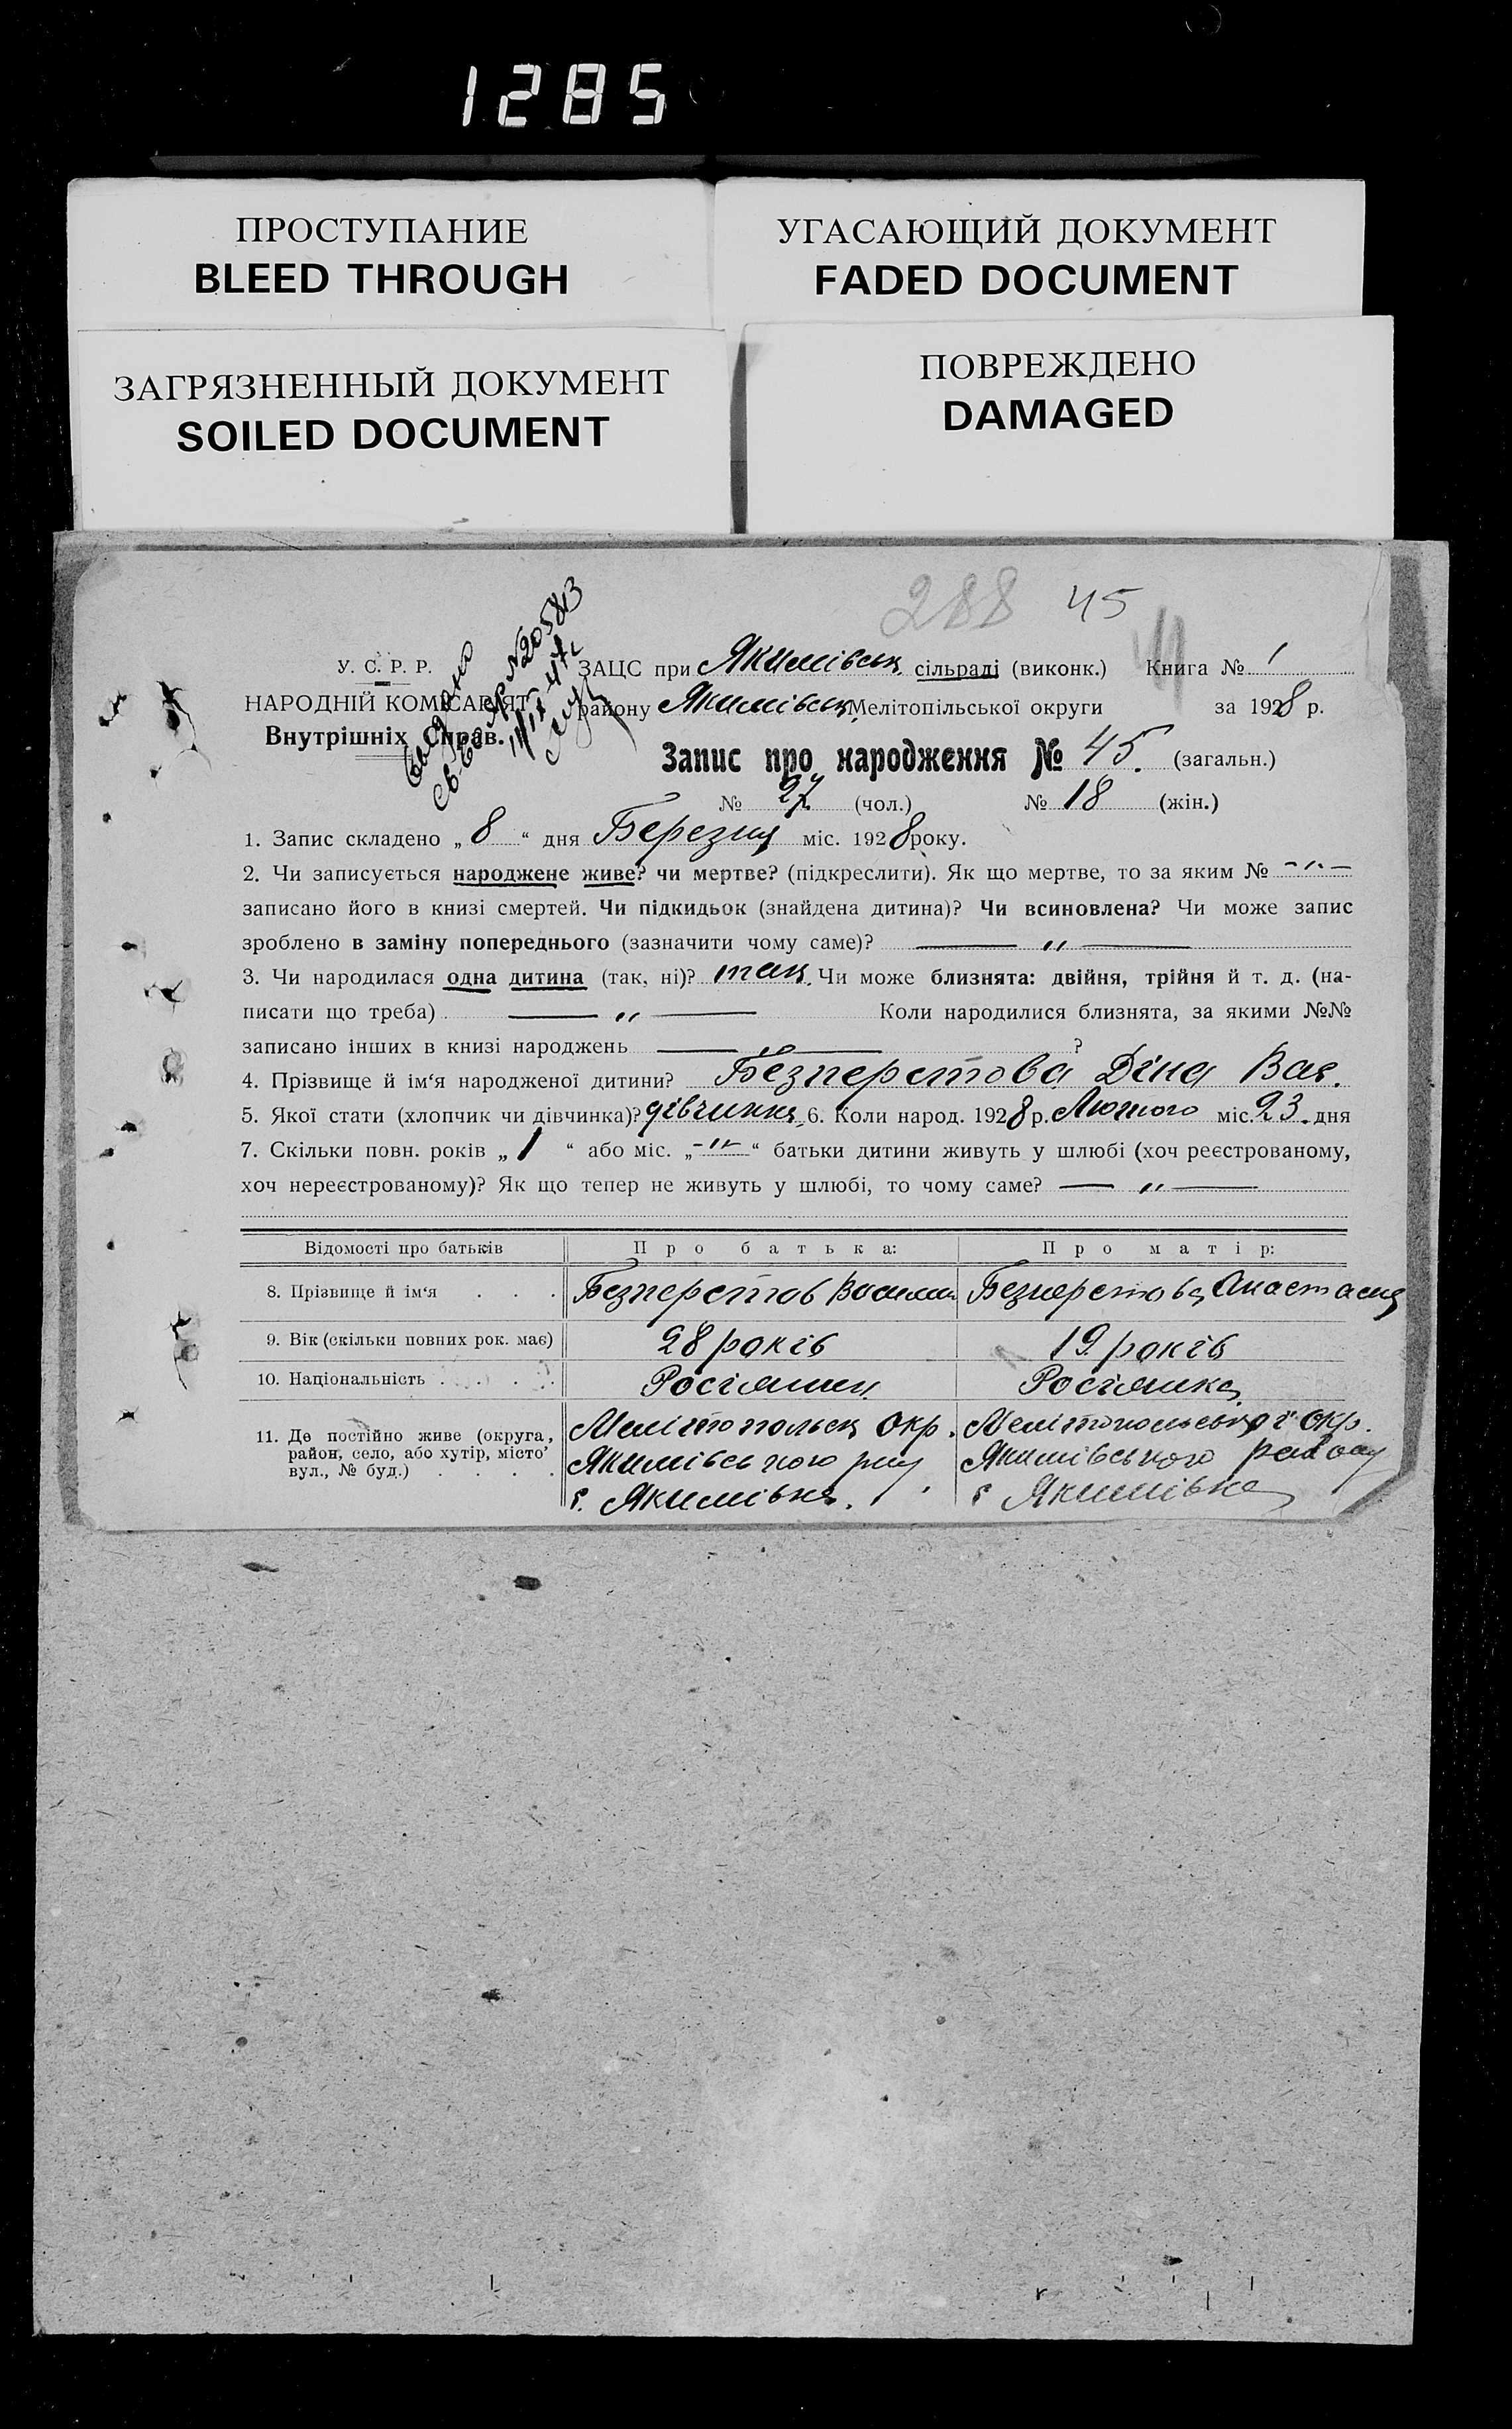 1285
ПРОСТУПАНИЕ
BLEED THROUGH
УГАСАЮЩИЙ ДОКУМЕНТ
FADED DOCUMENT
ЗАГРЯЗНЕННЫЙ ДОКУМЕНТ
SOILED DOCUMENT
ПОВРЕЖДЕНО
DAMAGED
288 45
У. С. Р. Р.
НАРОДНІЙ КОМІСАРІЯТ
Внутрішніх Справ.
Выдано
св-во №205813
ЗАЦС при Якимівськ сільраді (виконк.) Книга № 1
району Якимівськ Мелітопільської округи за 1928 р.
Запис про народження № 45. (загальн.)
№ 27 (чол.) № 18 (жін.)
1. Запис складено „ 8 “ дня Березня міс. 1928 року.
2. Чи записується народжене живе? чи мертве? (підкреслити). Як що мертве, то за яким № - „ -
записано його в книзі смертей. Чи підкидьок (знайдена дитина)? Чи всиновлена? Чи може запис
зроблено в заміну попереднього (зазначити чому саме)? — „ —
3. Чи народилася одна дитина (так, ні)? так. Чи може близнята: двійня, трійня й т. д. (на-
писати що треба) — „ — Коли народилися близнята, за якими №№
записано інших в книзі народжень — „ — ?
4. Прізвище й ім‘я народженої дитини? Безперстова Діна Вас.
5. Якої стати (хлопчик чи дівчинка)? дівчинка 6. Коли народ. 1928 р. Лютого міс. 23. дня
7. Скільки повн. років „ 1 “ або міс. „ - „ - “ батьки дитини живуть у шлюбі (хоч реєстрованому,
хоч нереєстрованому)? Як що тепер не живуть у шлюбі, то чому саме? — „ —
Відомості про батьків Про батька: Про матір:
8. Прізвище й ім‘я . . . Безперстов Василий Безперстова Анастасия
9. Вік (скільки повних рок. має) 28 років 19 років
10. Національність . . . . Росіянин Росіянка
11. Де постійно живе (округа, район, село, або хутір, місто’ вул., № буд.) . . . .
Мелітопольск окр. Мелітопольської окр.
Якимівського рну Якимівського району
с. Якимівка. с Якимівка